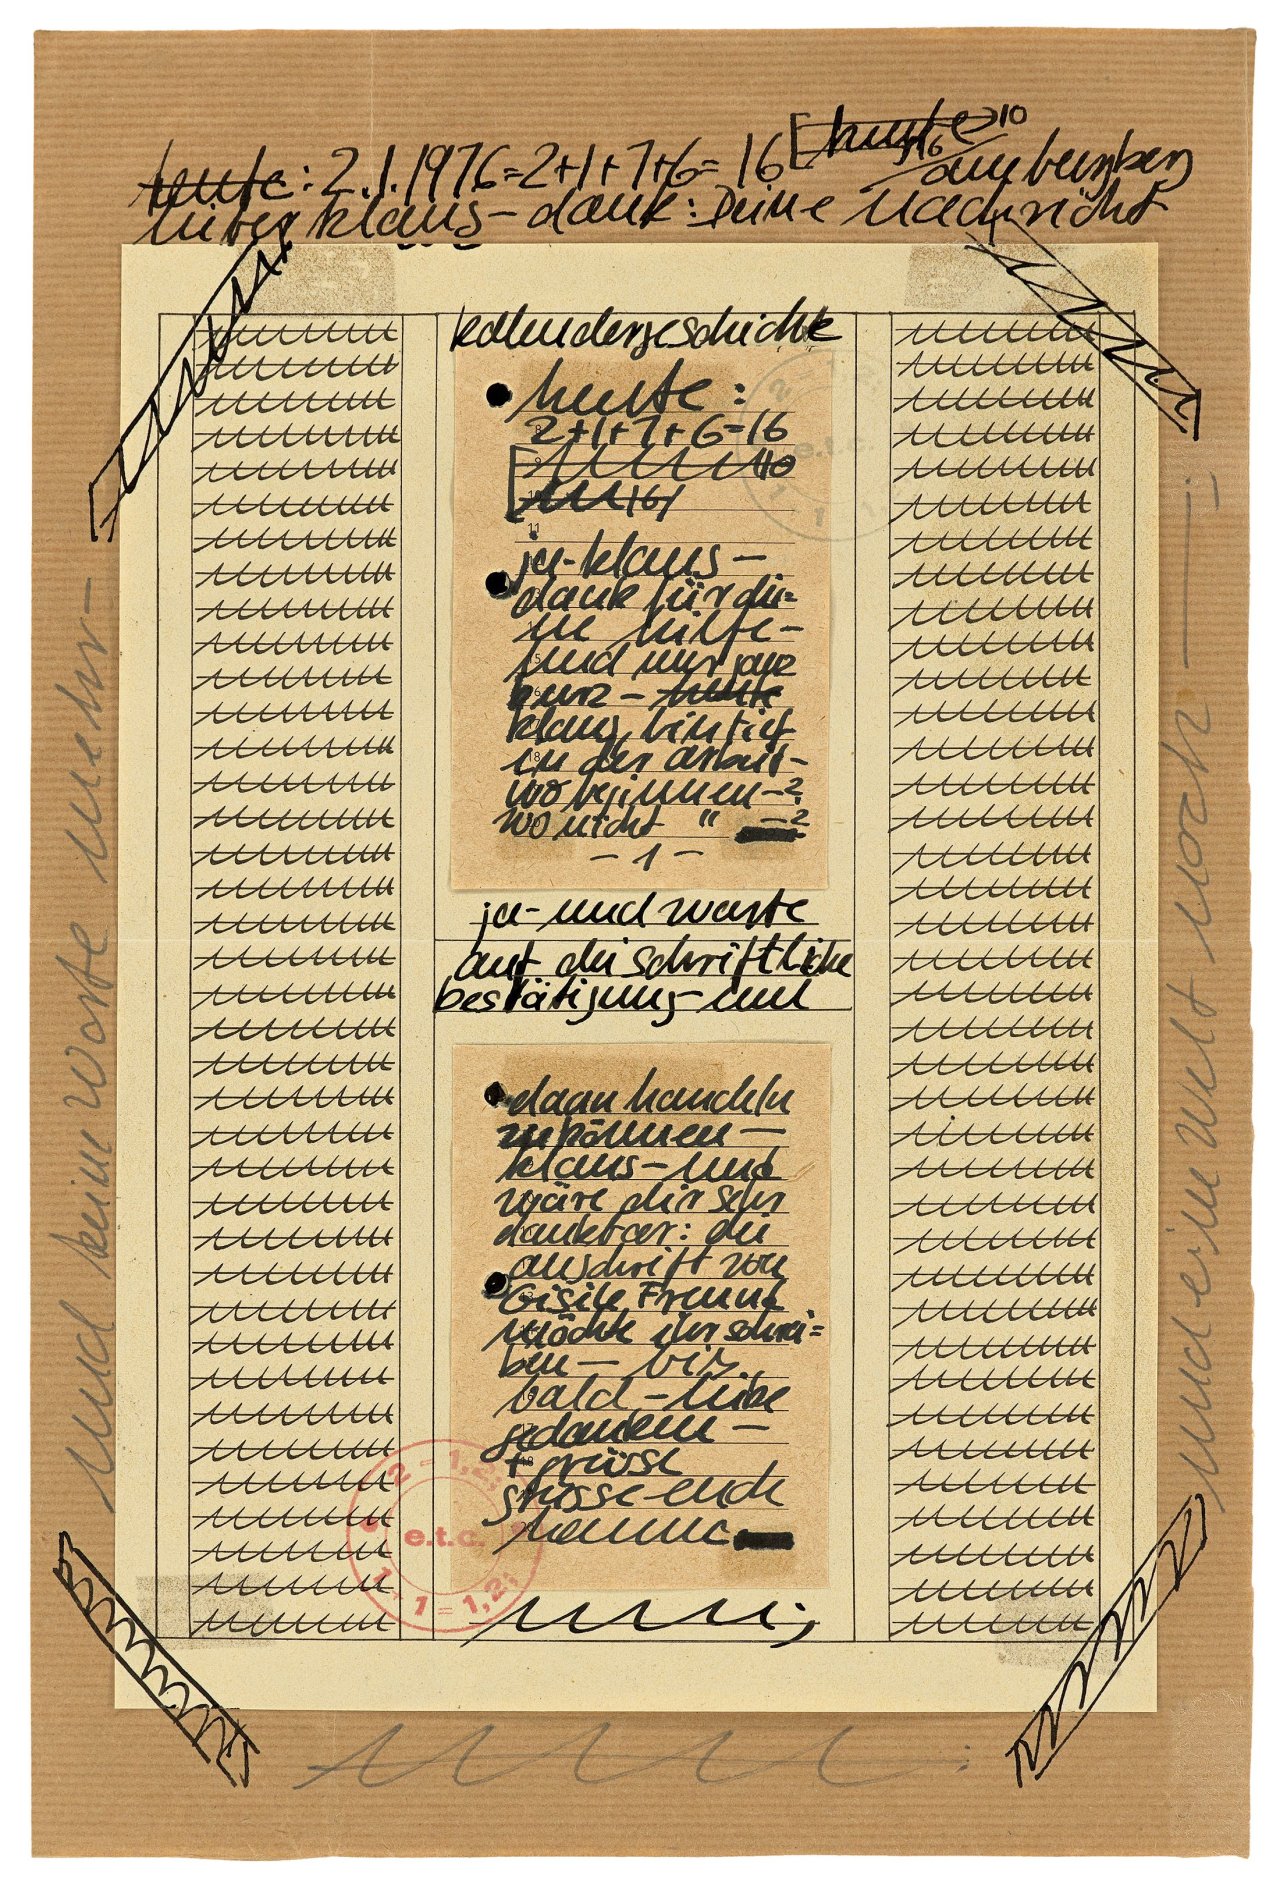 heute: 2.1.1976=2+1+7+6=16 [heute 10
16
am burgberg
lieber klaus - dank: Deine Nachricht
kalendergeschichte
heute:
2+1+7+6=16
10
16/
11
ja-klaus-
dank für dei=
ne hilfe-
und nur ganz
kurz - heute
klaus, bin tief
in der arbeit-
wo beginnen-?
wo nicht " -?
-1-
ja-und warte
auf die schriftliche
bestätigung-um
daan handeln
zu können-
klaus-und
wäre dir sehr
dankbar: die
anschrift von
Gisèle Freund
möchte ihr schrei=
ben- bis
bald-liebe
gedanken-
+ grüsse
grüsse-euch
hanne
2-1,2;
e.t.c.
1+1=1,2;
und keine worte mehr-
und eine welt noch